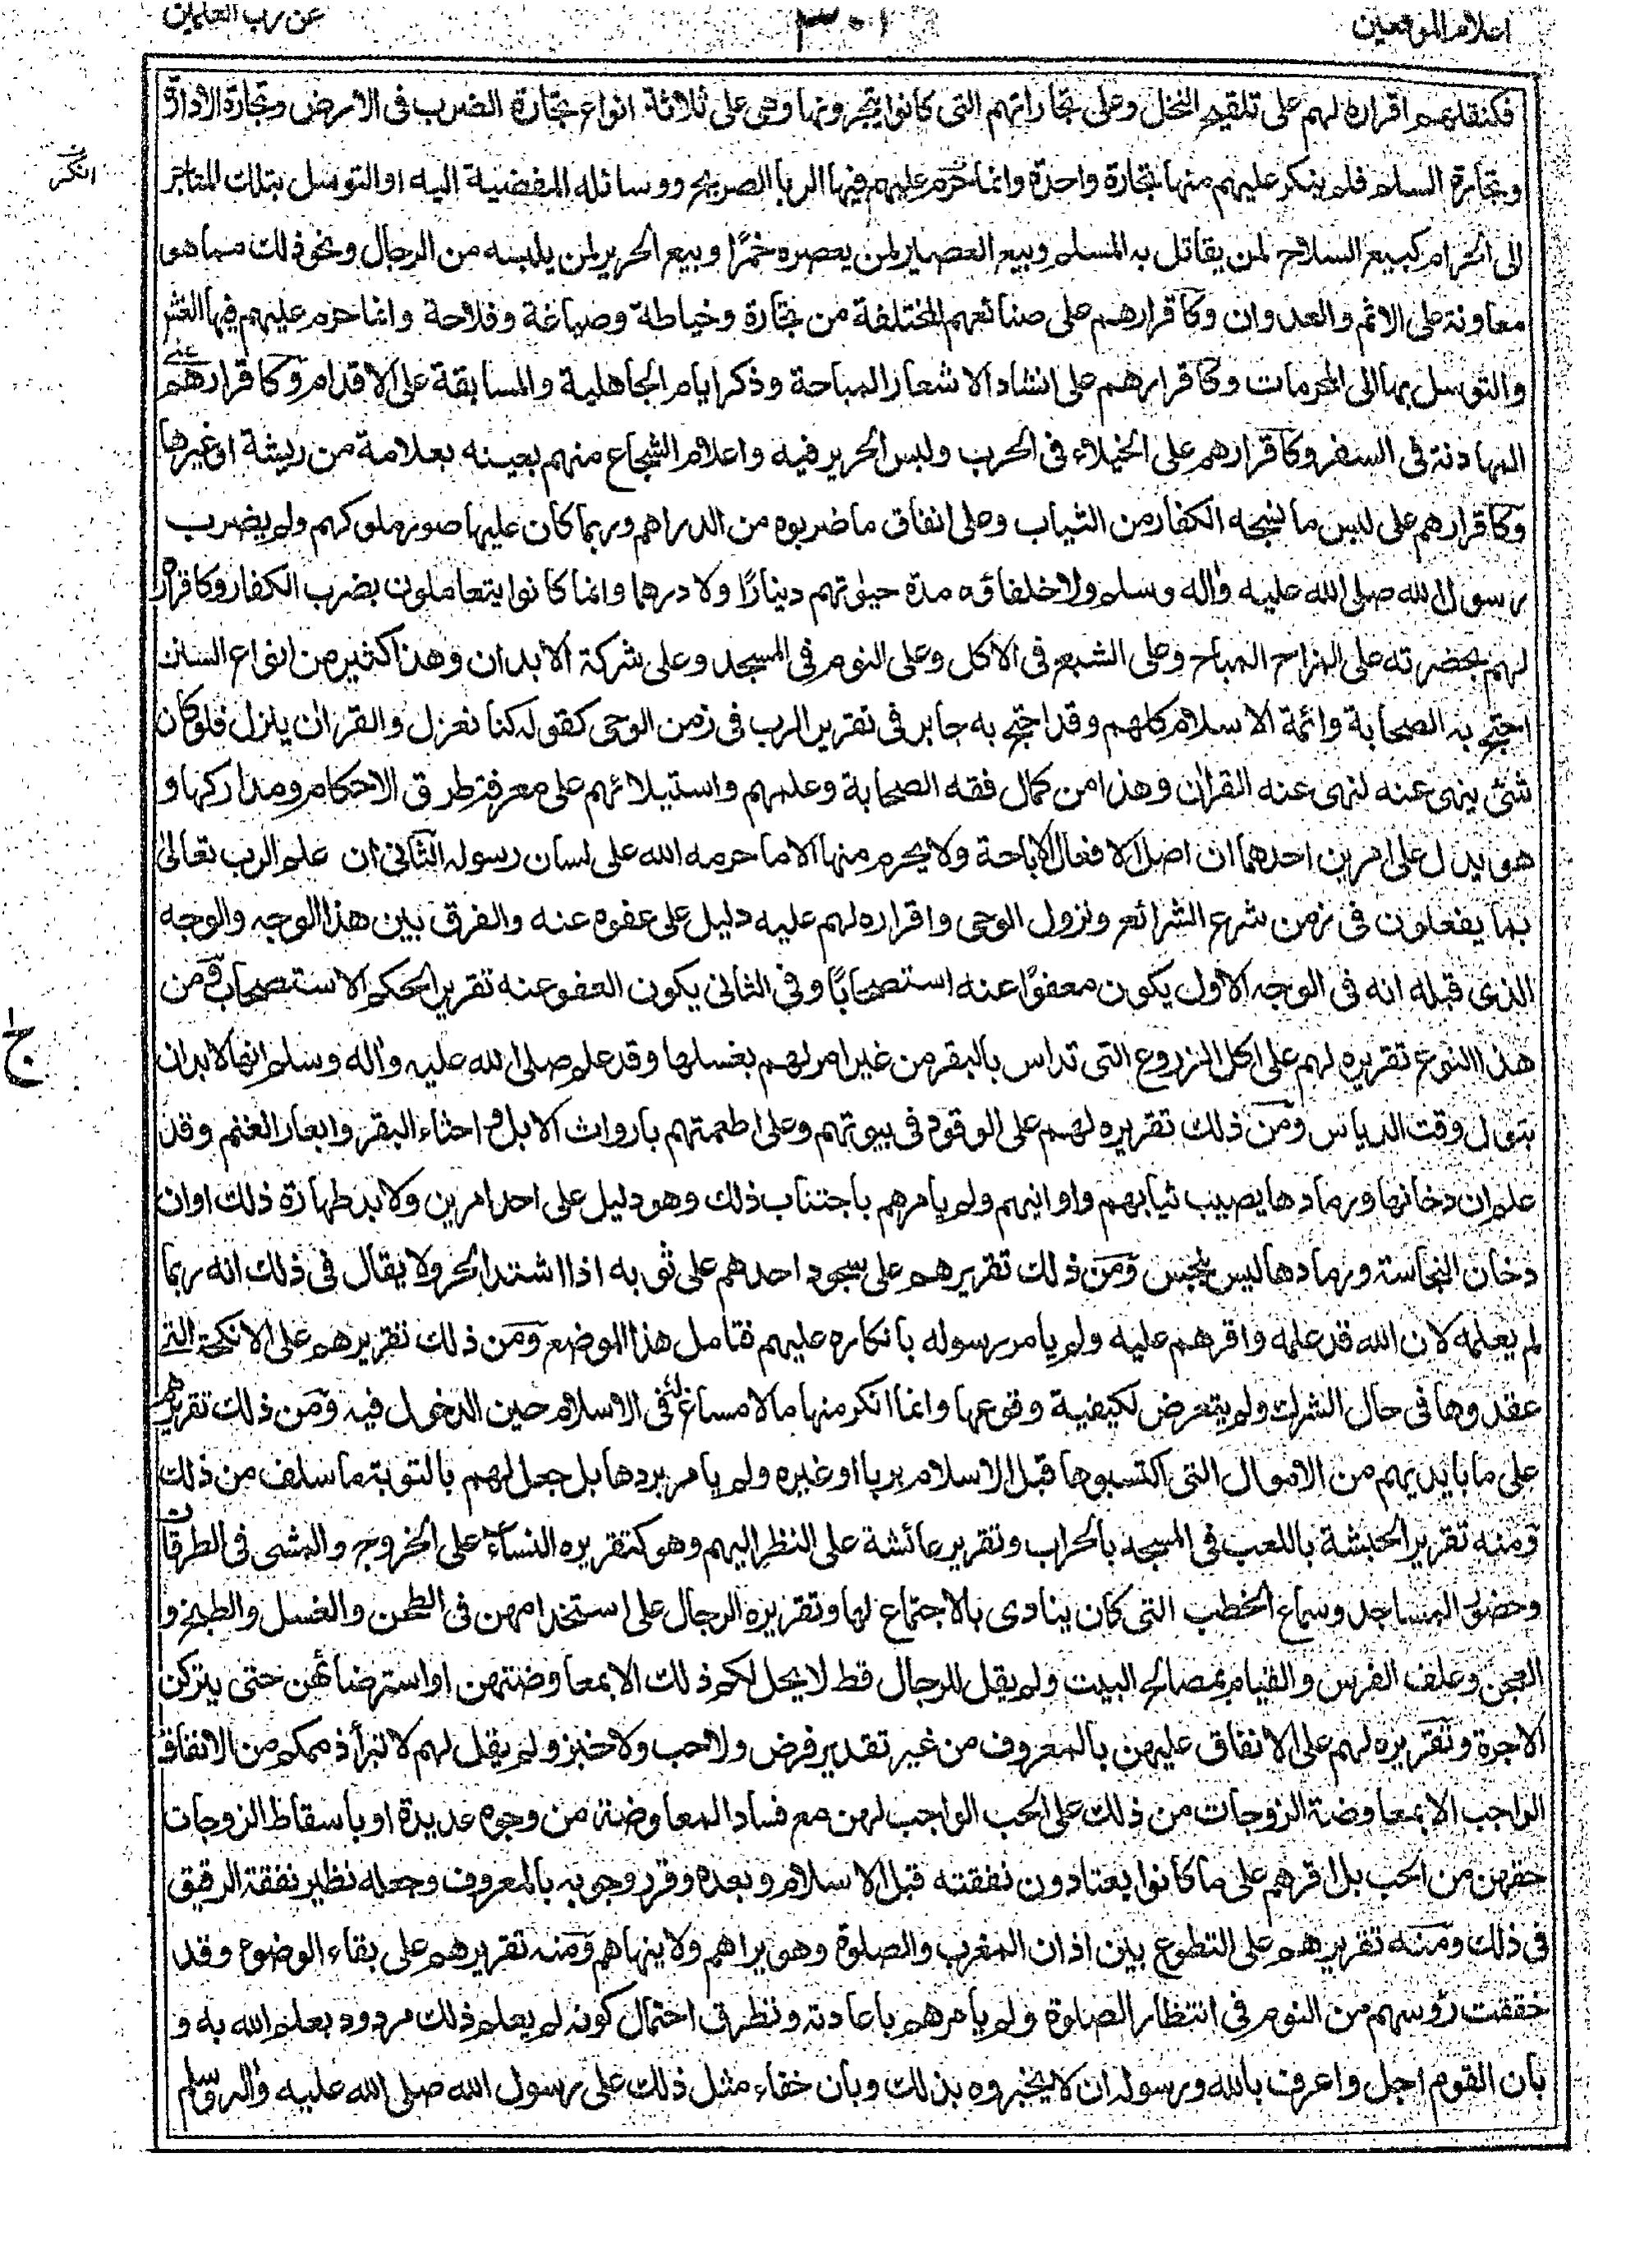 اعلام الموقعين
٣٠١
عن رب العلمين
فكنقلهم اقراره لهم على تلقيح النخل وعلى تجاراتهم التى كانوا يتجرونها وهى على ثلاثة انواع تجارة الضرب فى الارض وتجارة الادارة
وتجارة السلم فلم ينكر عليهم منها تجارة واحدة وانما حرم عليهم فيها الربا الصريح ووسائله المفضية اليه او التوسل بتلك المتاجر
الى الحرام كبيع السلاح لمن يقاتل به المسلم وبيع العصير لمن يعصره خمرًا وبيع الحرير لمن يلبسه من الرجال ونحو ذلك مما هو
معاونة على الاثم والعدوان وكاقرارهم على صنائعهم المختلفة من تجارة وخياطة وصياغة وفلاحة وانما حرم عليهم فيها الغش
والتوسل بها الى المحرمات وكاقرارهم على انشاد الاشعار المباحة وذكر ايام الجاهلية والمسابقة على الاقدام وكاقرارهم على
المهادنة فى السفر وكاقرارهم على الخيلاء فى الحرب ولبس الحرير فيه واعلام الشجاع منهم بعينه بعلامة من ريشة او غيرها
وكاقرارهم على لبس ما نسجه الكفار من الثياب وعلى انفاق ما ضربوه من الدراهم وربما كان عليها صور ملوكهم ولم يضرب
رسول الله صلى الله عليه واٰله وسلم ولا خلفاؤه مدة حيٰوتهم دينارًا ولا درهما وانما كانوا يتعاملون بضرب الكفار وكاقراره
لهم بحضرته على المزاح المباح وعلى الشبع فى الاكل وعلى النوم فى المسجد وعلى شركة الابدان وهذا كثير من انواع السنن
احتج به الصحابة وائمة الاسلام كلهم وقد احتج به جابر فى تقرير الرب فى زمن الوحى كقوله كنا نعزل والقراٰن ينزل فلو كان
شئ ينهى عنه لنهى عنه القراٰن وهذا من كمال فقه الصحابة وعلمهم واستيلائهم على معرفة طرق الاحكام ومداركها و
هو يدل على امرين احدهما ان اصل الافعال الاباحة ولا يحرم منها الا ما حرمه الله على لسان رسوله الثانى ان علم الرب تعالىٰ
بما يفعلون فى زمن شرع الشرائع ونزول الوحى واقراره لهم عليه دليل على عفوه عنه والفرق بين هذا الوجه والوجه
الذى قبله انه فى الوجه الاول يكون معفوًا عنه استصحابًا وفى الثانى يكون العفو عنه تقرير الحكم الاستصحاب ومن
هذا النوع تقريره لهم على اكل الزروع التى تداس بالبقر من غير امر لهم بغسلها وقد علم صلى الله عليه واٰله وسلم انها لا بد ان
تبول وقت الدياس ومن ذلك تقريره لهم على الوقود فى بيوتهم وعلى اطعمتهم بارواث الابل و احثاء البقر وابعار الغنم وقد
علم ان دخانها ورمادها يصيب ثيابهم واوانيهم ولم يامرهم باجتناب ذلك وهو دليل على احد امرين ولا بد طهارة ذلك او ان
دخان النجاسة ورمادها ليس بنجس ومن ذلك تقريرهم على سجود احدهم على ثوبه اذا اشتد الحر ولا يقال فى ذلك انه ربما
لم يعلمه لان الله قد علمه واقرهم عليه ولم يامر رسوله بانكاره عليهم فتامل هذا الموضع ومن ذلك تقريرهم على الانكحة التى
عقدوها فى حال الشرك ولم يتعرض لكيفية وقوعها وانما انكر منها ما لا مساغ له فى الاسلام حين الدخول فيه ومن ذلك تقريرهم
على ما بايديهم من الاموال التى اكتسبوها قبل الاسلام بربا او غيره ولم يامر بردها بل جعل لهم بالتوبة ما سلف من ذلك
ومنه تقرير الحبشة باللعب فى المسجد بالحراب وتقرير عائشة على النظر اليهم وهو كتقريره النساء على الخروج والمشى فى الطرقات
وحضور المساجد وسماع الخطب التى كان ينادى بالاجتماع لها وتقريره الرجال على استخدامهن فى الطحن والغسل والطبخ و
العجن وعلف الفرس والقيام بمصالح البيت ولم يقل للرجال قط لا يحل لكم ذلك الا بمعاوضتهن او استرضائهن حتى يتركن
الاجرة وتقريره لهم على الانفاق عليهن بالمعروف من غير تقدير فرض ولا حب ولا خبز ولم يقل لهم لا تبرأ ذممكم من الانفاق
الواجب الا بمعاوضة الزوجات من ذلك على الحب الواجب لهن مع فساد المعاوضة من وجوه عديدة او باسقاط الزوجات
حقهن من الحب بل اقرهم على ما كانوا يعتادون نفقته قبل الاسلام وبعده وقرر وجوبه بالمعروف وجعله نظير نفقة الرقيق
فى ذلك ومنه تقريرهم على التطوع بين اذان المغرب والصلوة وهو يراهم ولا ينهاهم ومنه تقريرهم على بقاء الوضوء وقد
خفقت رؤسهم من النوم فى انتظار الصلوة ولم يامرهم باعادته وتطرق احتمال كونه لم يعلم ذلك مردود بعلم الله به و
بان القوم اجل واعرف بالله ورسوله ان لا يخبروه بذلك وبان خفاء مثل ذلك على رسول الله صلى الله عليه واٰله وسلم